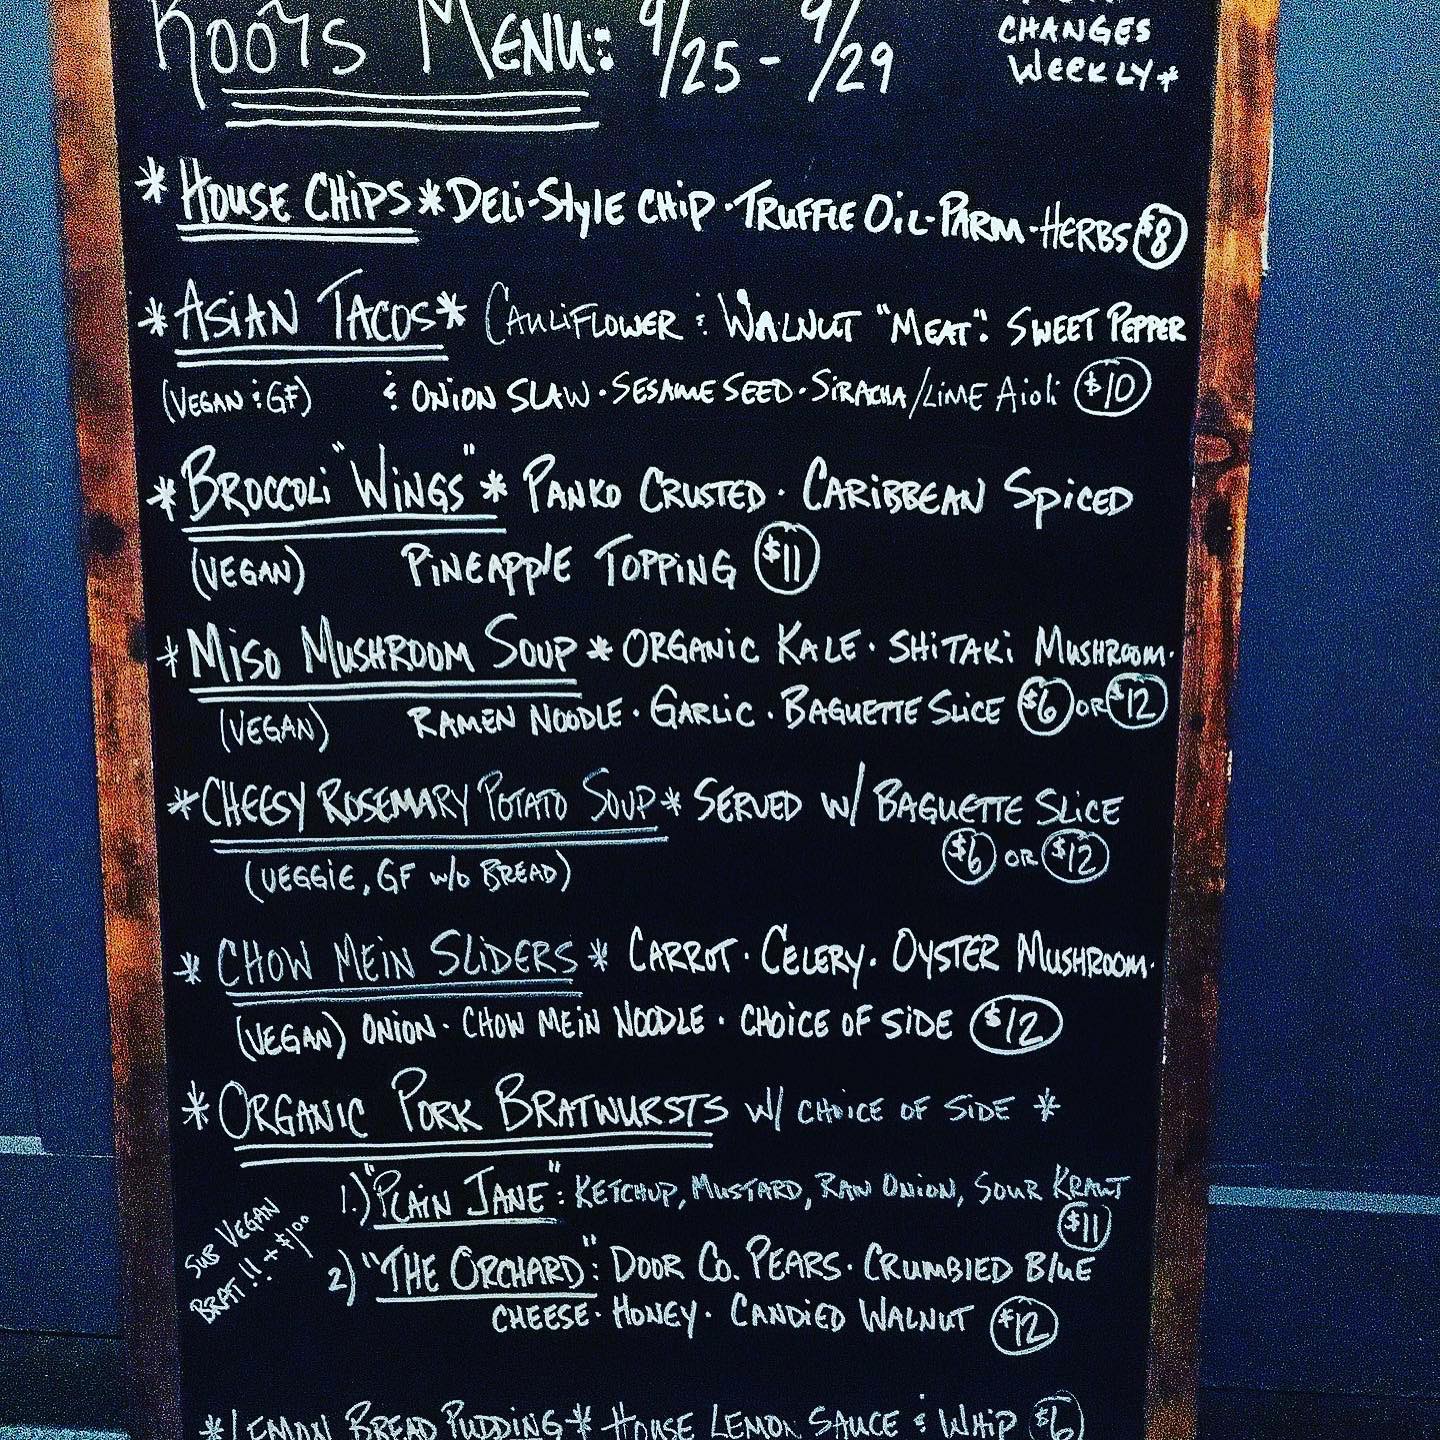 Roots Menu: 9/25 - 9/29
CHANGES
WEEKLY*
*HOUSE CHIPS* DELI-STYLE CHIP · TRUFFLE OIL - PARM · HERBS $8
*ASIAN TACOS* CAULIFLOWER & WALNUT "MEAT": SWEET PEPPER
(VEGAN & GF) & ONION SLAW · SESAME SEED · SIRACHA/LIME AIOLI $10
*BROCCOLI "WINGS"* PANKO CRUSTED · CARIBBEAN SPICED
(VEGAN) PINEAPPLE TOPPING $11
*MISO MUSHROOM SOUP* ORGANIC KALE · SHITAKI MUSHROOM ·
(VEGAN) RAMEN NOODLE · GARLIC · BAGUETTE SLICE $6 OR $12
*CHEESY ROSEMARY POTATO SOUP* SERVED W/ BAGUETTE SLICE
(VEGGIE, GF W/O BREAD) $6 OR $12
*CHOW MEIN SLIDERS* CARROT · CELERY · OYSTER MUSHROOM ·
(VEGAN) ONION · CHOW MEIN NOODLE · CHOICE OF SIDE $12
*ORGANIC PORK BRATWURSTS W/ CHOICE OF SIDE *
1.) "PLAIN JANE": KETCHUP, MUSTARD, RAW ONION, SOUR KRAUT
$11
SUB VEGAN
BRAT!! + $1.00
2) "THE ORCHARD": DOOR CO. PEARS · CRUMBLED BLUE
CHEESE · HONEY · CANDIED WALNUT $12
*LEMON BREAD PUDDING* HOUSE LEMON SAUCE & WHIP $6